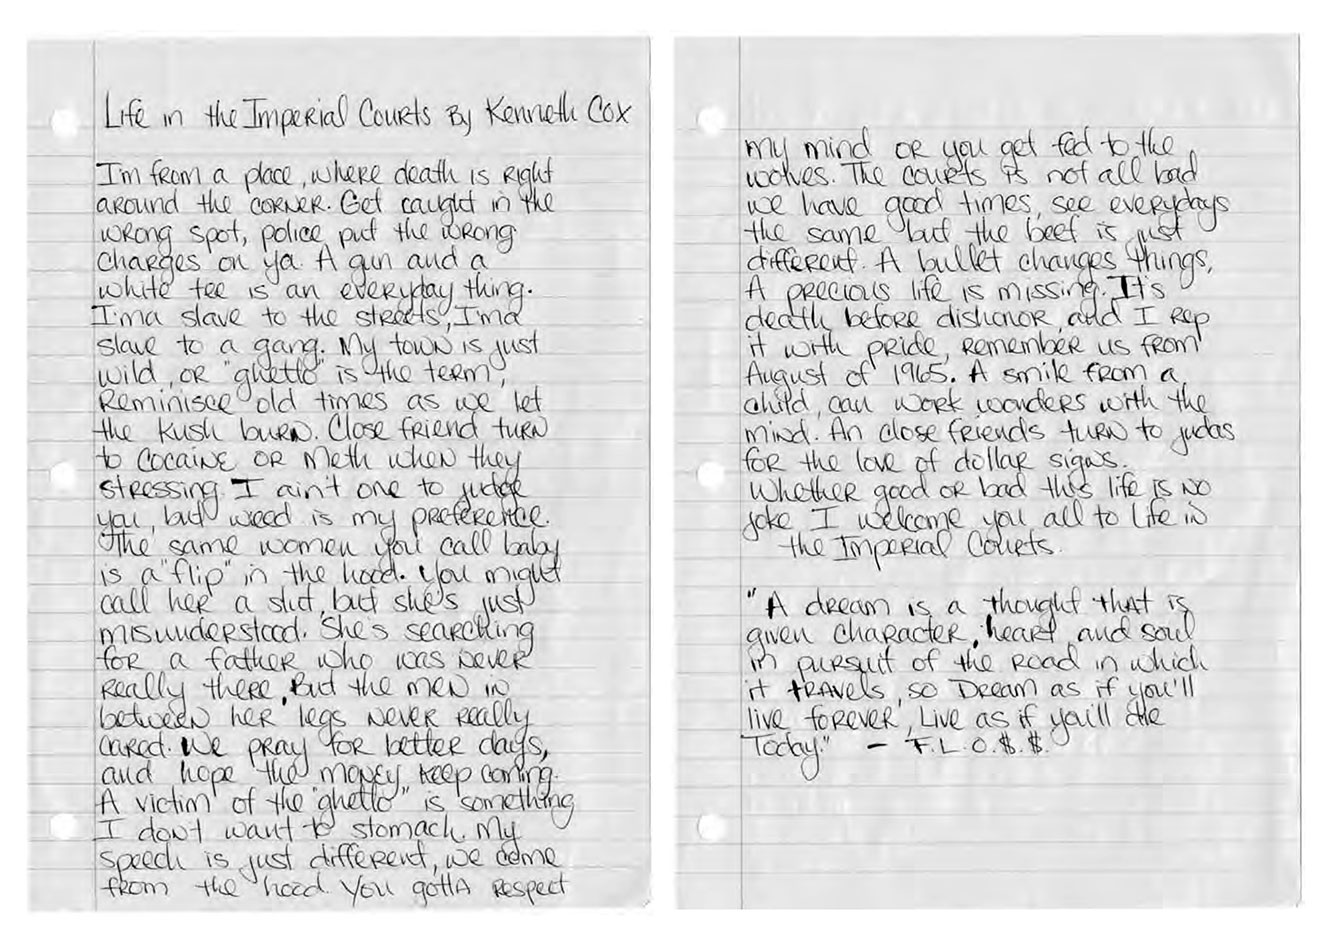 Life in the Imperial Courts By Kenneth Cox
I'm from a place, where death is right
around the corner. Get caught in the
wrong spot, police put the wrong
charges on ya. A gun and a
white tee is an everyday thing.
I'ma slave to the streets, I'ma
slave to a gang. My town is just
wild, or "ghetto" is the term,
Reminisce old times as we let
the Kush burn. Close friend turn
to cocaine or meth when they
stressing. I ain't one to judge
you, but weed is my preference.
The same women you call baby
is a "flip" in the hood. You might
call her a slut, but she's just
misunderstood. She's searching
for a father who was never
really there, But the men in
between her legs never really
cared. We pray for better days,
and hope the money keep coming.
A victim of the "ghetto" is something
I don't want to stomach. My
speech is just different, we come
from the hood. You gotta respect
my mind or you get fed to the
wolves. The courts is not all bad
we have good times, see everydays
the same but the beef is just
different. A bullet changes things,
A precious life is missing. It's
death before dishonor, and I rep
it with pride, remember us from
August of 1965. A smile from a
child, can work wonders with the
mind. An close friends turn to judas
for the love of dollar signs.
Whether good or bad this life is no
joke I welcome you all to life in
the Imperial Courts.
"A dream is a thought that is
given character, heart and soul
in pursuit of the road in which
it travels, so Dream as if you'll
live forever, Live as if you'll die
Today." - F.L.O.$.$.